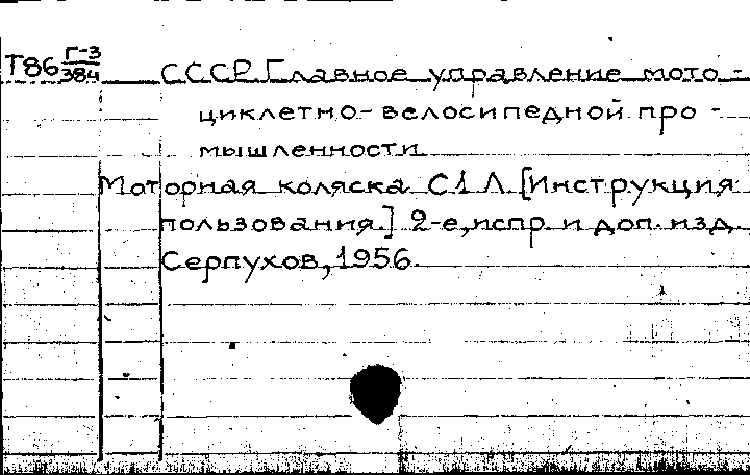 Т86 Г-3/384 СССР. Главное управление мото-
циклетно-велосипедной про-
мышленности
Моторная коляска С1Л. [Инструкция
пользования.] 2-е, испр. и доп. изд.
Серпухов, 1956.